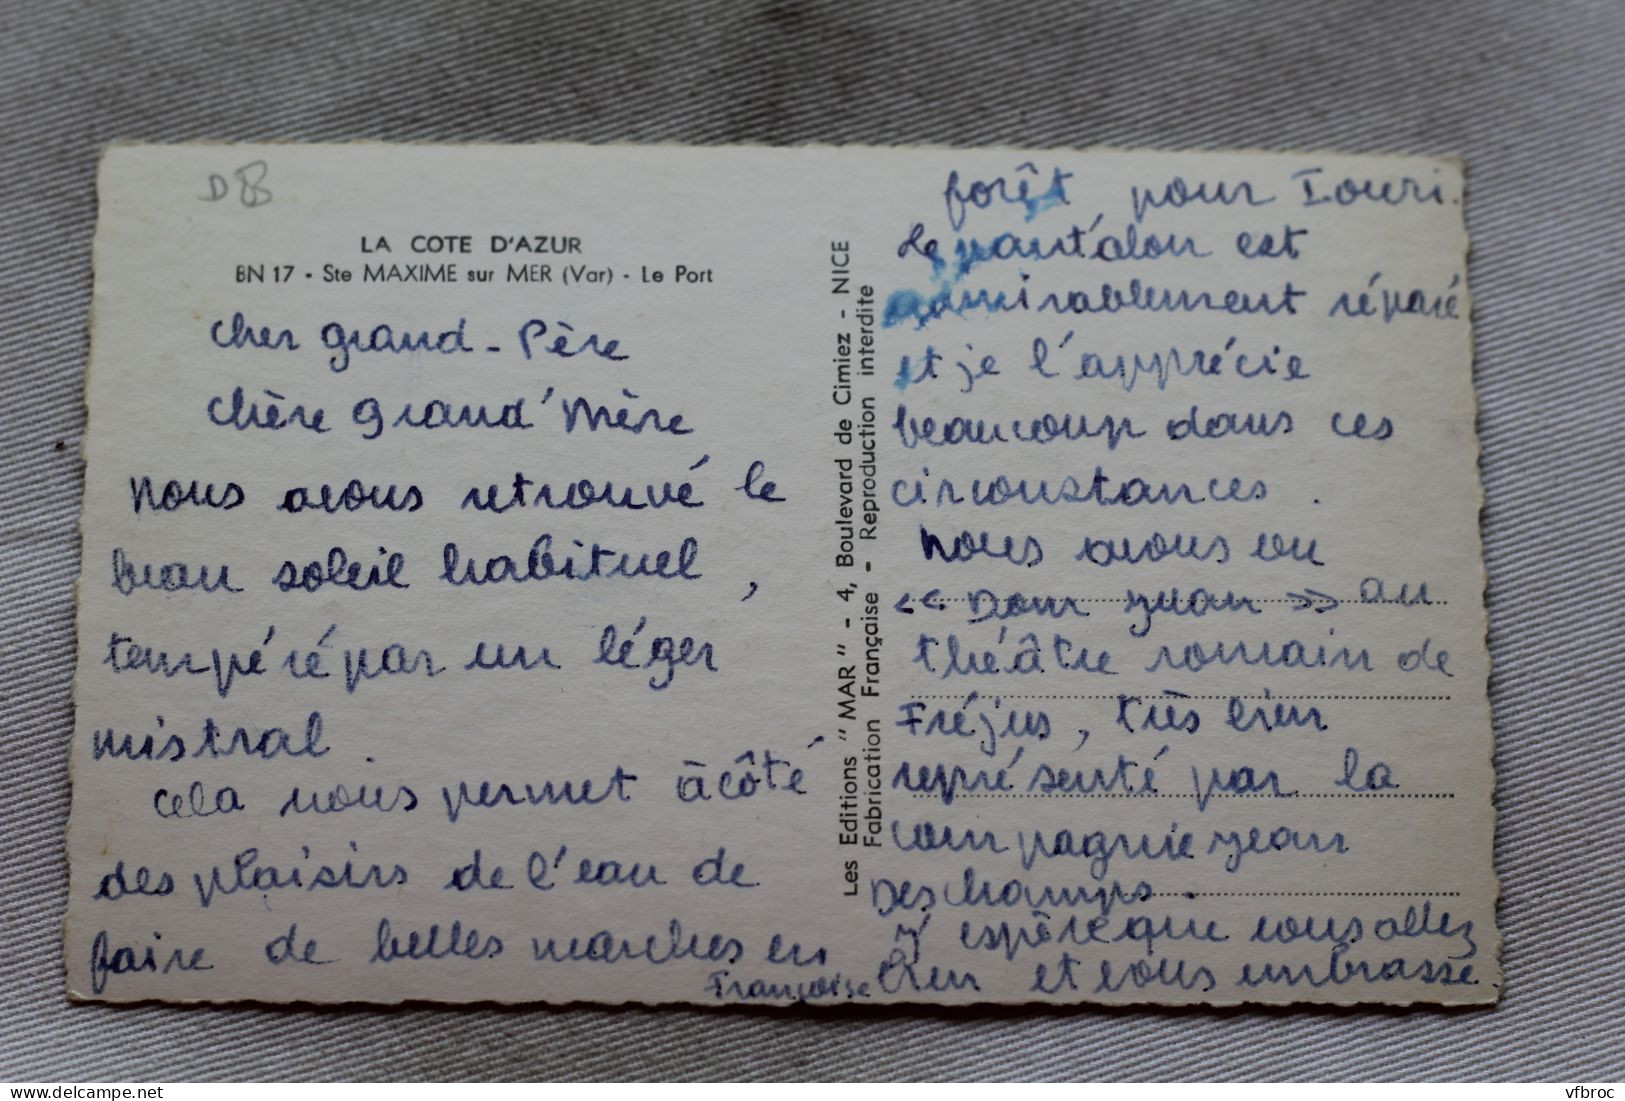 D
LA COTE D'AZUR
BN 17 - Ste MAXIME sur MER (Var) - Le Port
cher grand-Père
chère grand'Mère
Nous avons retrouvé le
beau soleil habituel,
tempéré par un léger
mistral.
Cela nous permet à côté
des plaisirs de l'eau de
faire de belles marches en
forêt pour Iouri.
Le pantalon est
admirablement réparé
et je l'apprécie
beaucoup dans ces
circonstances.
Nous avons vu
<< Dom Juan >> au
théâtre romain de
Fréjus, très bien
représenté par la
compagnie Jean
Deschamps.
J'espère que vous allez
bien et vous embrasse.
Françoise
Les Editions "MAR" - 4, Boulevard de Cimiez - NICE
Fabrication Française - Reproduction interdite
vfbroc